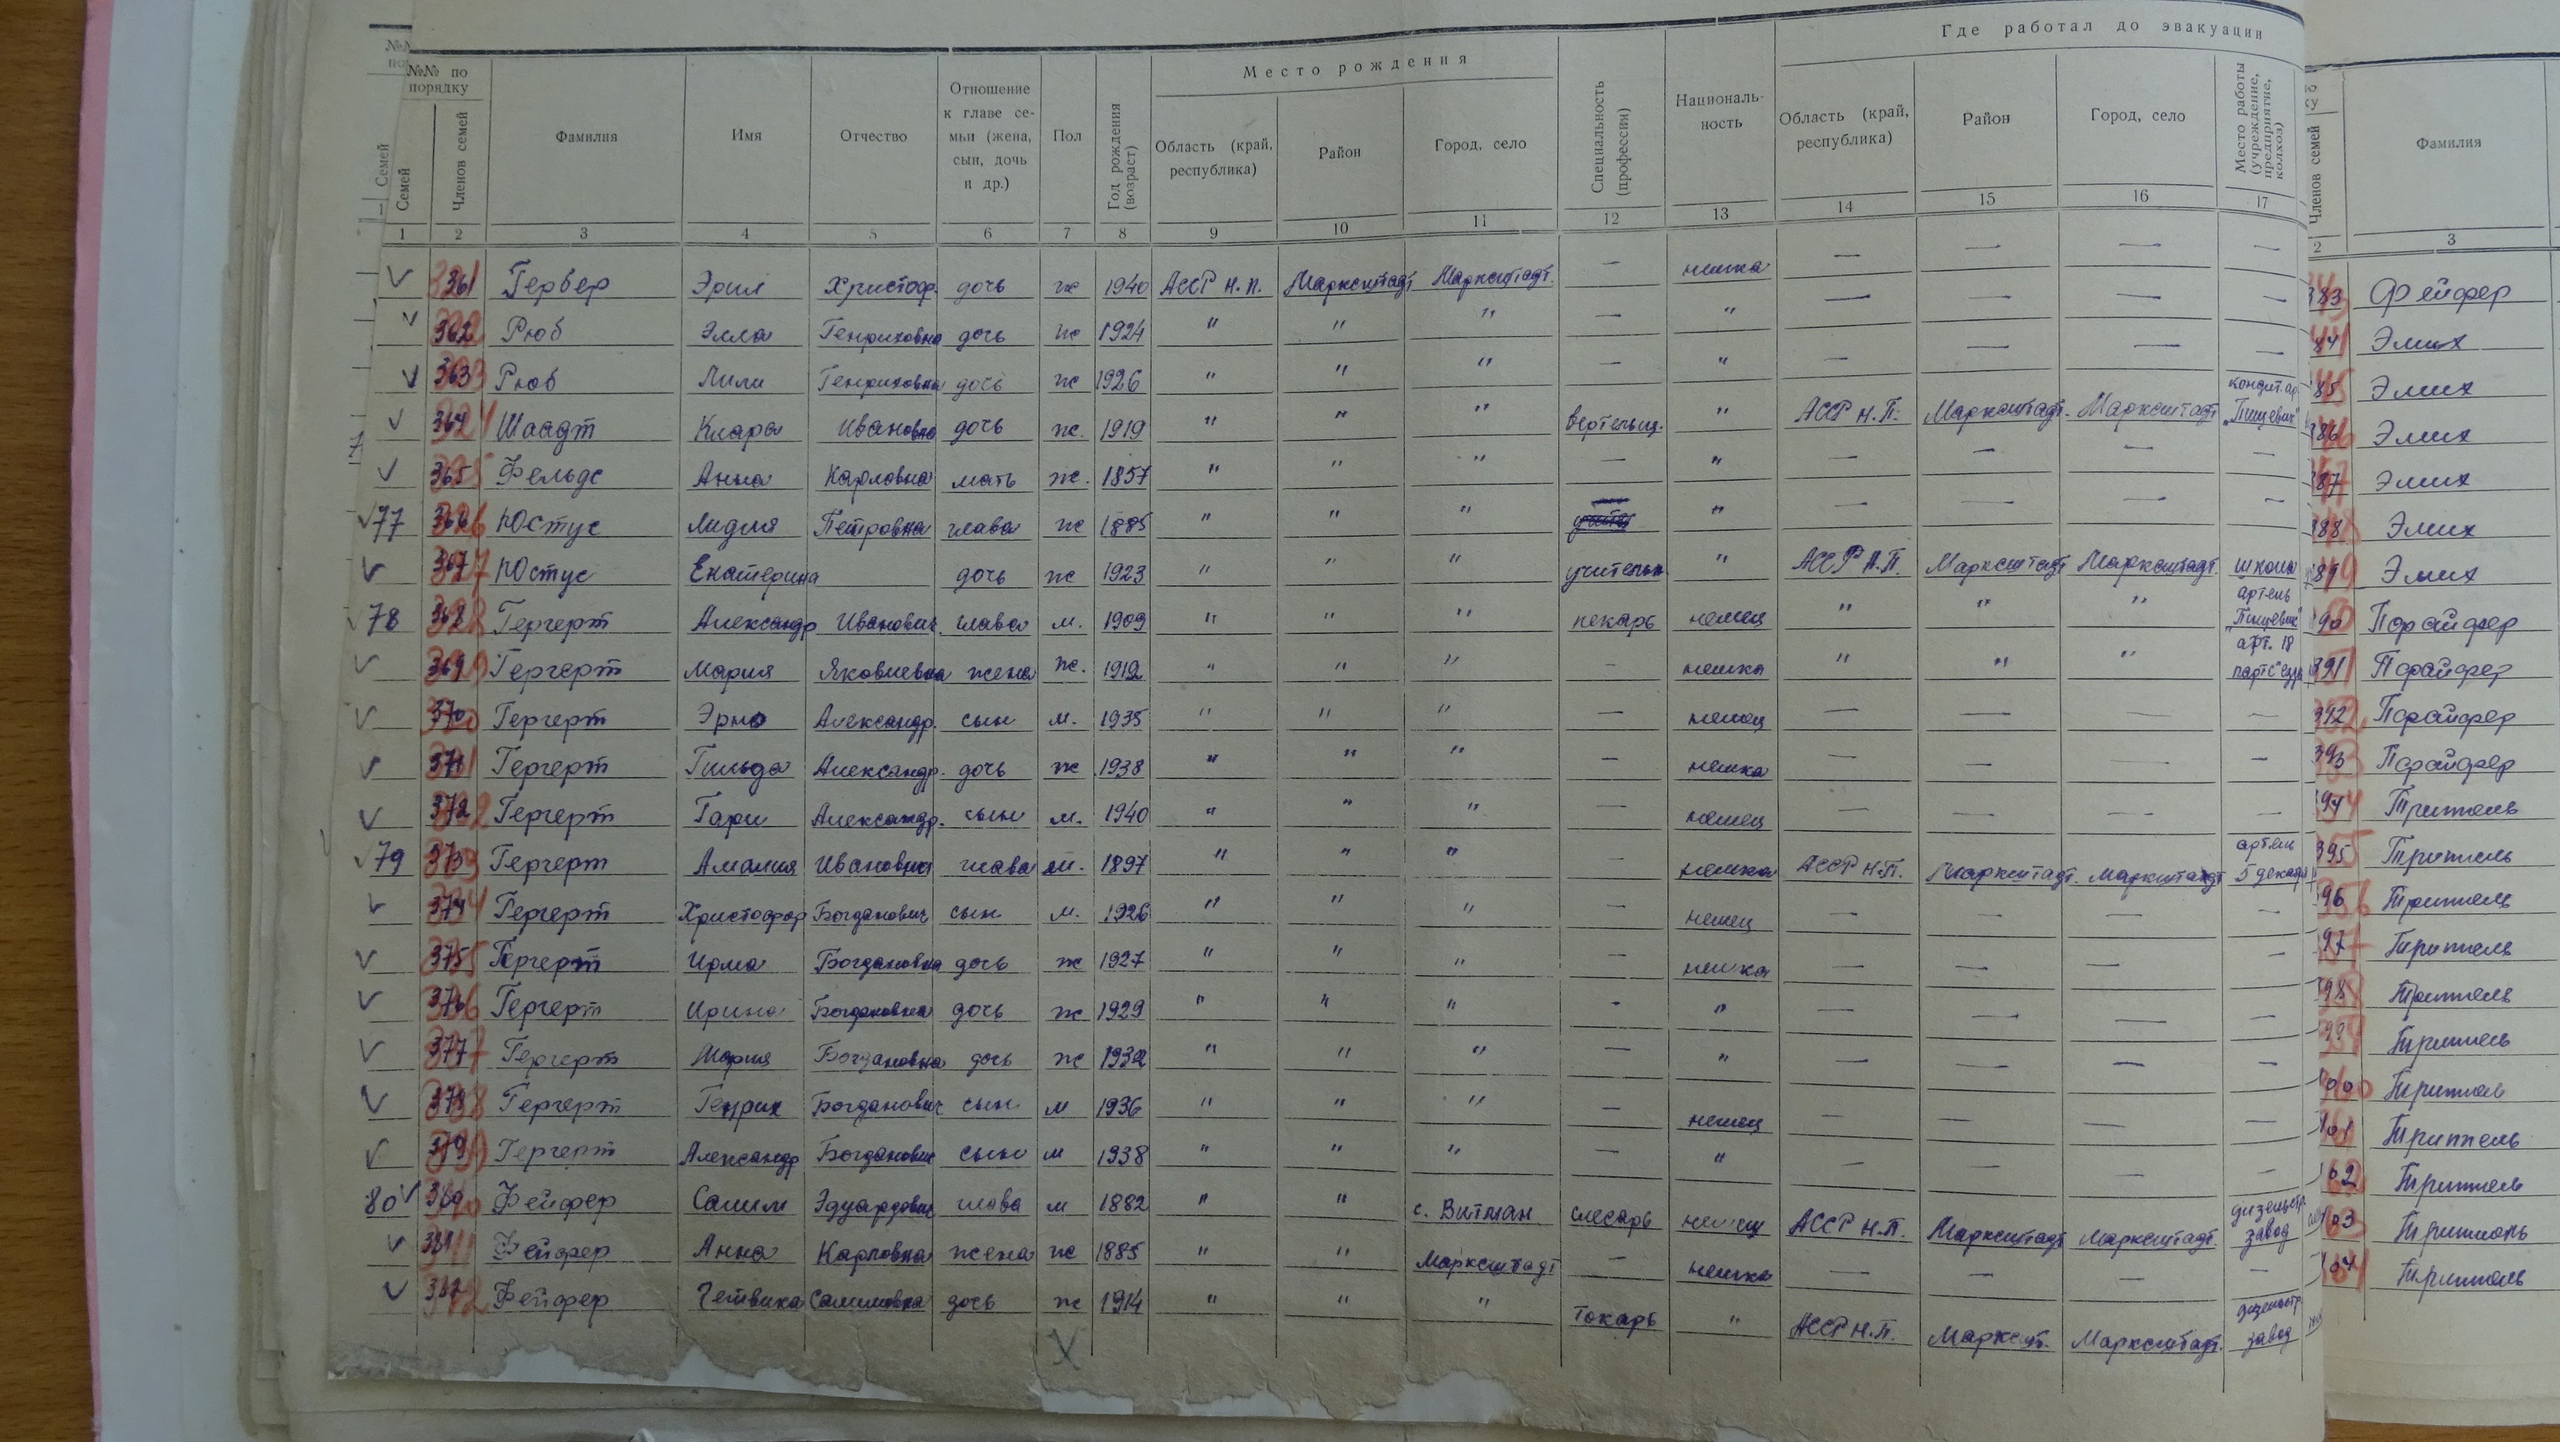 Место рождения
Где работал до эвакуации
№№ по порядку
Семей
Членов семей
Фамилия
Имя
Отчество
Отношение к главе семьи (жена, сын, дочь и др.)
Пол
Год рождения (возраст)
Область (край, республика)
Район
Город, село
Специальность (профессия)
Националь-ность
Область (край, республика)
Район
Город, село
Место работы (учреждение, предприятие, колхоз)
Членов семей
Фамилия
1 2 3 4 5 6 7 8 9 10 11 12 13 14 15 16 17 2 3
361 Гербер Христоф. дочь ж 1940 АССР Н.П. Марксштадт Марксштадт. — немка — — — —
362 Рюб Элла Генриховна дочь ж 1924 " " " — " — — — —
363 Рюб Лили Генриховна дочь ж 1926 " " " — " — — — —
364 Шаадт Клара Ивановна дочь ж. 1919 " " " вертельщ. " АССР Н.П. Марксштадт. Марксштадт "Пищевик"
365 Фельде Анна Карловна мать ж. 1857 " " " — " — — — —
77 366 Юстус Лидия Петровна глава ж 1885 " " " " — — — —
367 Юстус Екатерина дочь ж 1923 " " " учительн. " АССР Н.П. Марксштадт Марксштадт. школа
78 368 Гергерт Александр Иванович глава м. 1909 " " " пекарь немец " " " артель "Пищевик"
369 Гергерт Мария Яковлевна жена ж. 1912 " " " — немка " " "
370 Гергерт Эрно Александр. сын м. 1935 " " " — немец — — — —
371 Гергерт Гильда Александр. дочь ж 1938 " " " — немка — — — —
372 Гергерт Гари Александр. сын м. 1940 " " " — немец — — — —
79 373 Гергерт Амалия Ивановна глава 1897 " " " — немка АССР Н.П. Марксштадт. Марксштадт артель 5 декабр
374 Гергерт Христофор Богданович сын м. 1926 " " " — немец — — — —
375 Гергерт Ирма Богдановна дочь ж 1927 " " " — немка — — — —
376 Гергерт Ирина Богдановна дочь ж 1929 " " " - " — — — —
377 Гергерт Мария Богдановна дочь ж 1932 " " " — " — — — —
378 Гергерт Генрих Богданович сын м 1936 " " " — немец — — — —
379 Гергерт Александр Богданович сын м 1938 " " " — " — — — —
80 380 Фейфер Салим Эдуардович глава м 1882 " " с. Витман слесарь немец АССР Н.П. Марксштадт Марксштадт. завод
381 Фейфер Анна Карловна жена ж 1885 " " Марксштадт — немка — — — —
382 Фейфер Салимовна дочь ж 1914 " " " токарь " АССР Н.П. Марксшт. Марксштадт. завод
383 Фейфер
84 Эмих
85 Эмих
386 Эмих
87 Эмих
388 Эмих
89 Эмих
90 Порайфер
391 Порайфер
392 Порайфер
393 Порайфер
94 Триппель
395 Триппель
96 Триппель
97 Триппель
98 Триппель
99 Триппель
Триппель
01 Триппель
02 Триппель
03 Триппель
04 Триппель